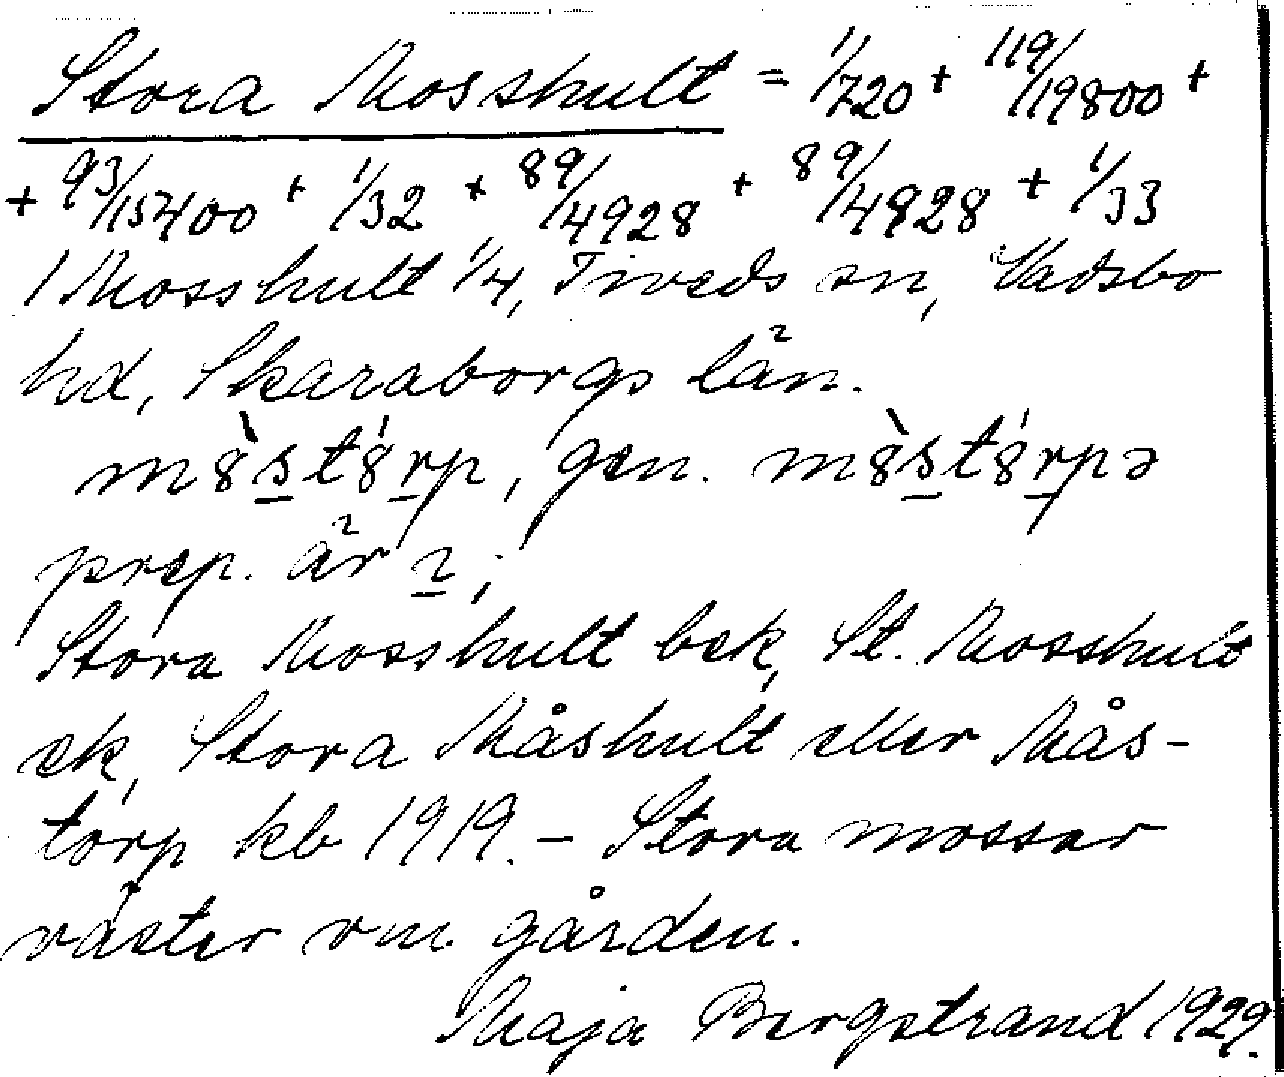 Stora Mosshult = 1/720 + 119/19800 +
+ 93/15400 + 1/32 + 89/4928 + 89/4928 + 1/33
i Mosshult 1/4, Tiveds sn, Vadsbo
hd, Skaraborgs län.
mò̀stórp, gen. mòstórpə
prep. är ı;
Stora Mosshult bek, St. Mosshult
ek, Stora Måshult eller Mås-
torp kb 1919. – Stora mossar
väster om gården.
Maja Bergstrand 1929.